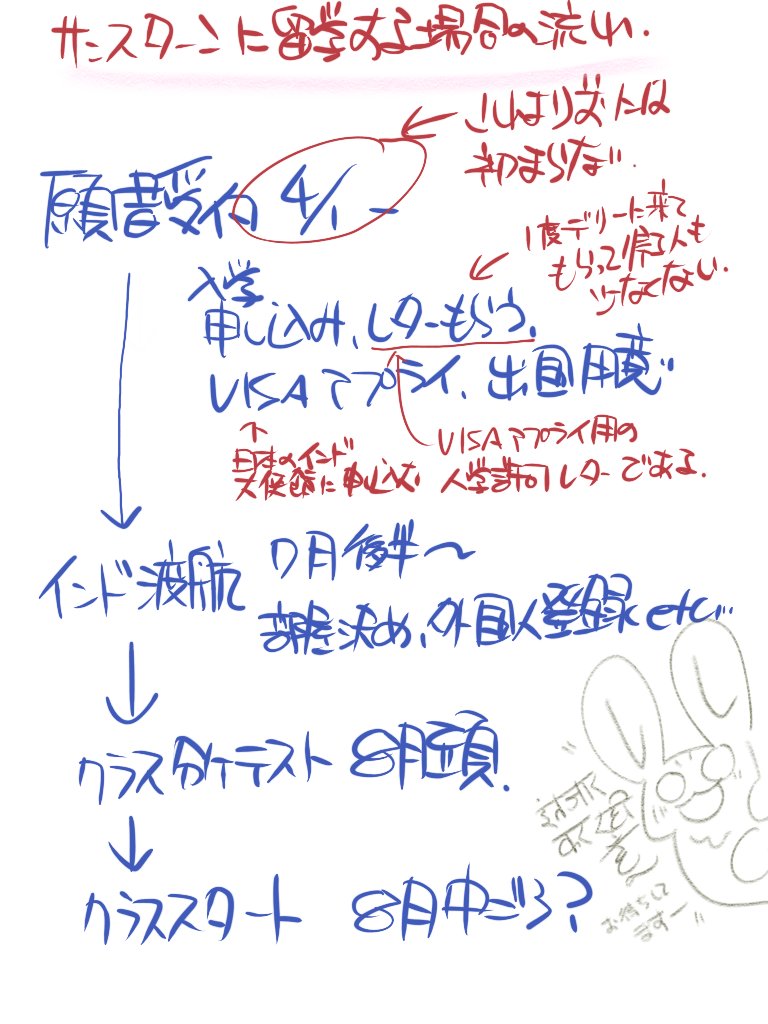 サンスターンに留学する場合の流れ.
初まらない.
願書受付 4/1 ー
1度デリーに来て
もらって帰る人も
少なくない.
入学
申し込み、レターもらう、
VISAアプライ、出国用意
VISAアプライ用の
入学許可レターである.
日本のインド
大使館に申し込む
インド渡航 7月後半〜
部屋決め、外国人登録etc...
クラス分けテスト 8月頭.
クラススタート 8月中ごろ?
お待ちして
ますー"